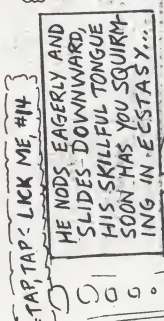 "TAP, TAP: LICK ME, #14
HE NODS EAGERLY AND
SLIDES DOWNWARD,
HIS SKILLFUL TONGUE
SOON HAS YOU SQUIRM-
ING IN ECSTASY...